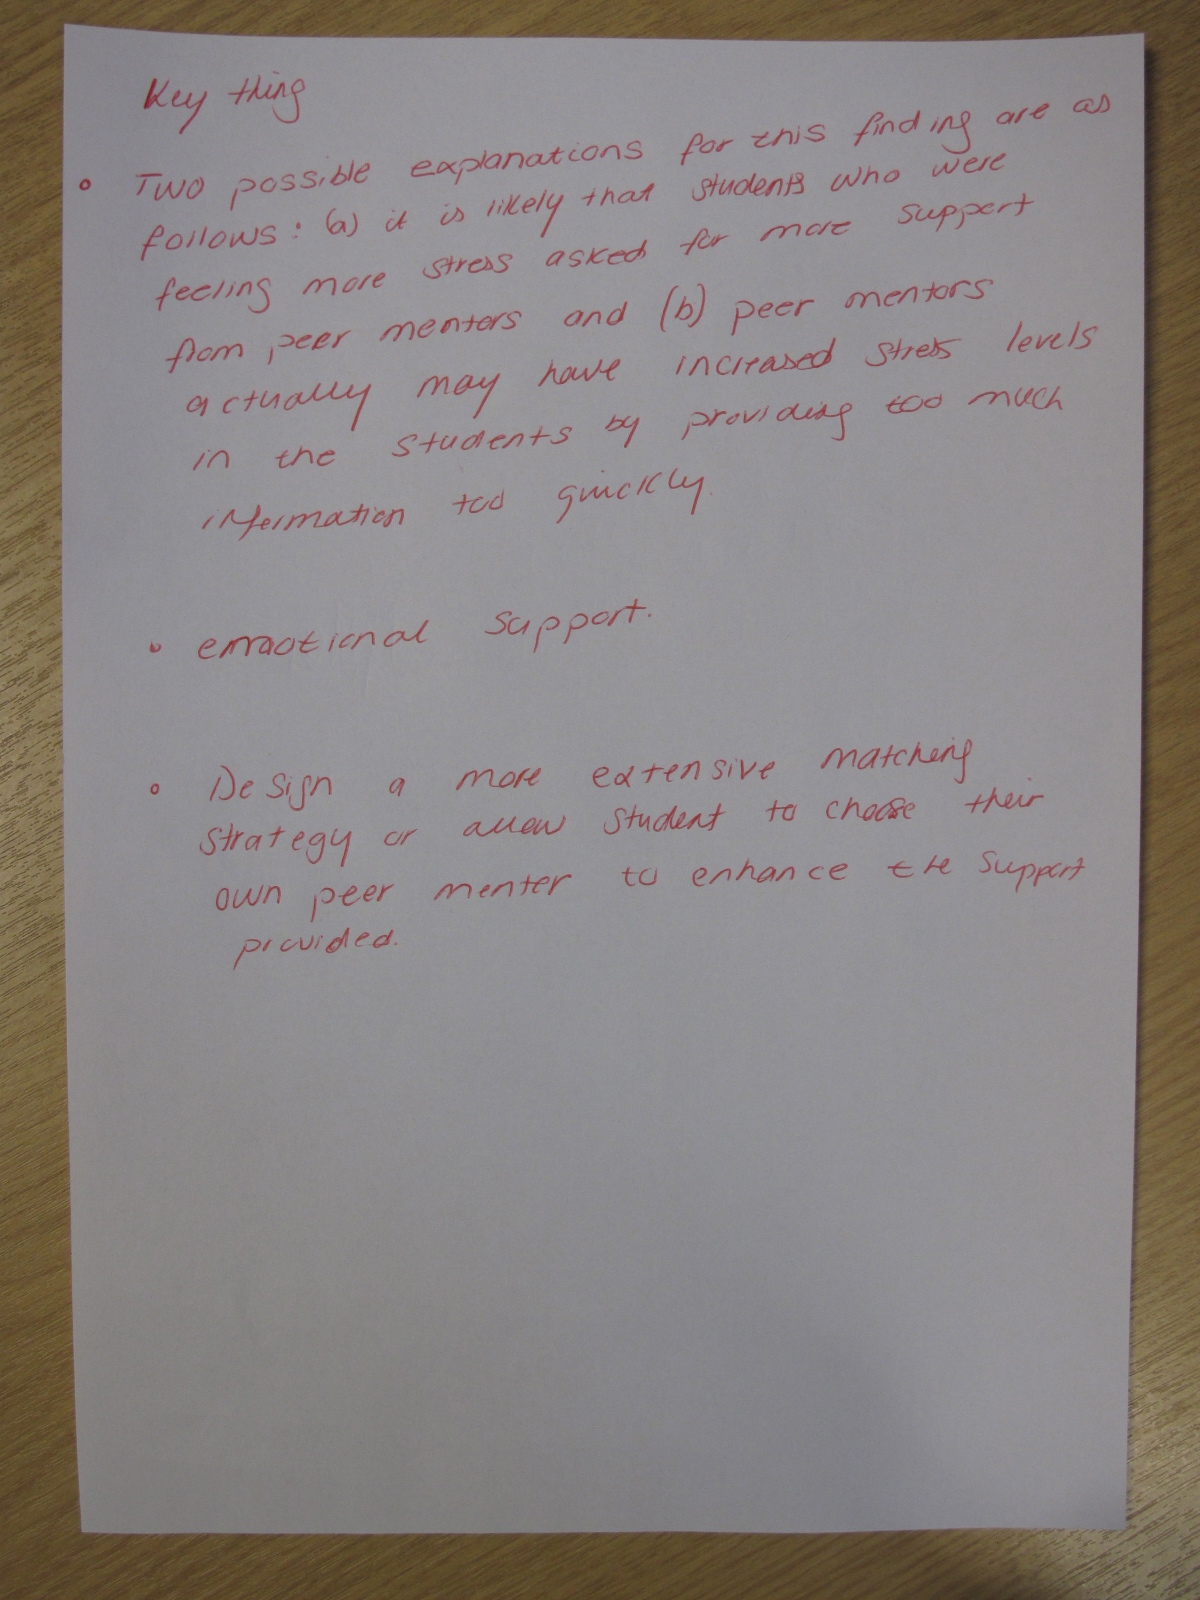 Key thing
Two possible explanations for this finding are as
follows: (a) it is likely that students who were
feeling more stress asked for more support
from peer mentors and (b) peer mentors
actually may have increased stress levels
in the students by providing too much
information too quickly.
emotional support.
Design a more extensive matching
strategy or allow student to choose their
own peer menter to enhance the support
provided.